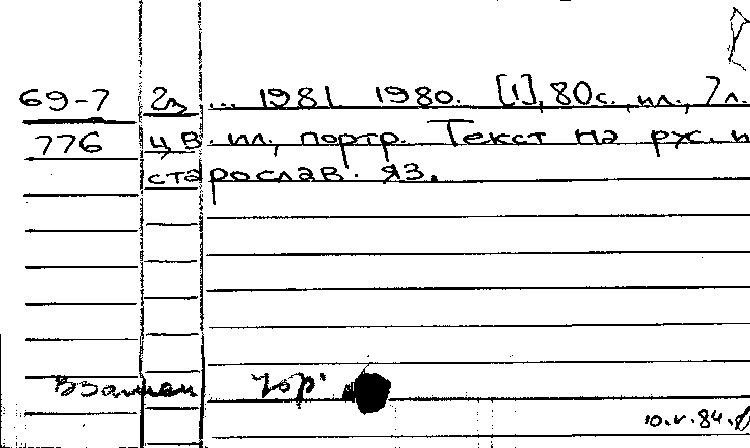 69-7 2з ... 1981 1980. [1], 80 с., ил., 7 л.
776 цв. ил., портр. Текст на рус. и
старослав. яз.
Взамен
10.V.84.